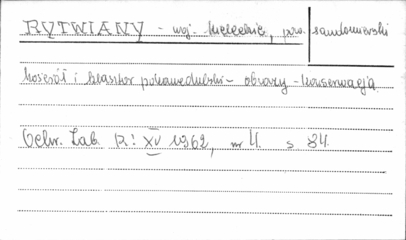 RYTWIANY - woj. kieleckie, pow. sandomierski
kościół i klasztor pokamedulski - obrazy - konserwacja
Ochr. Zab. R: XV 1962, nr 4. s 84.